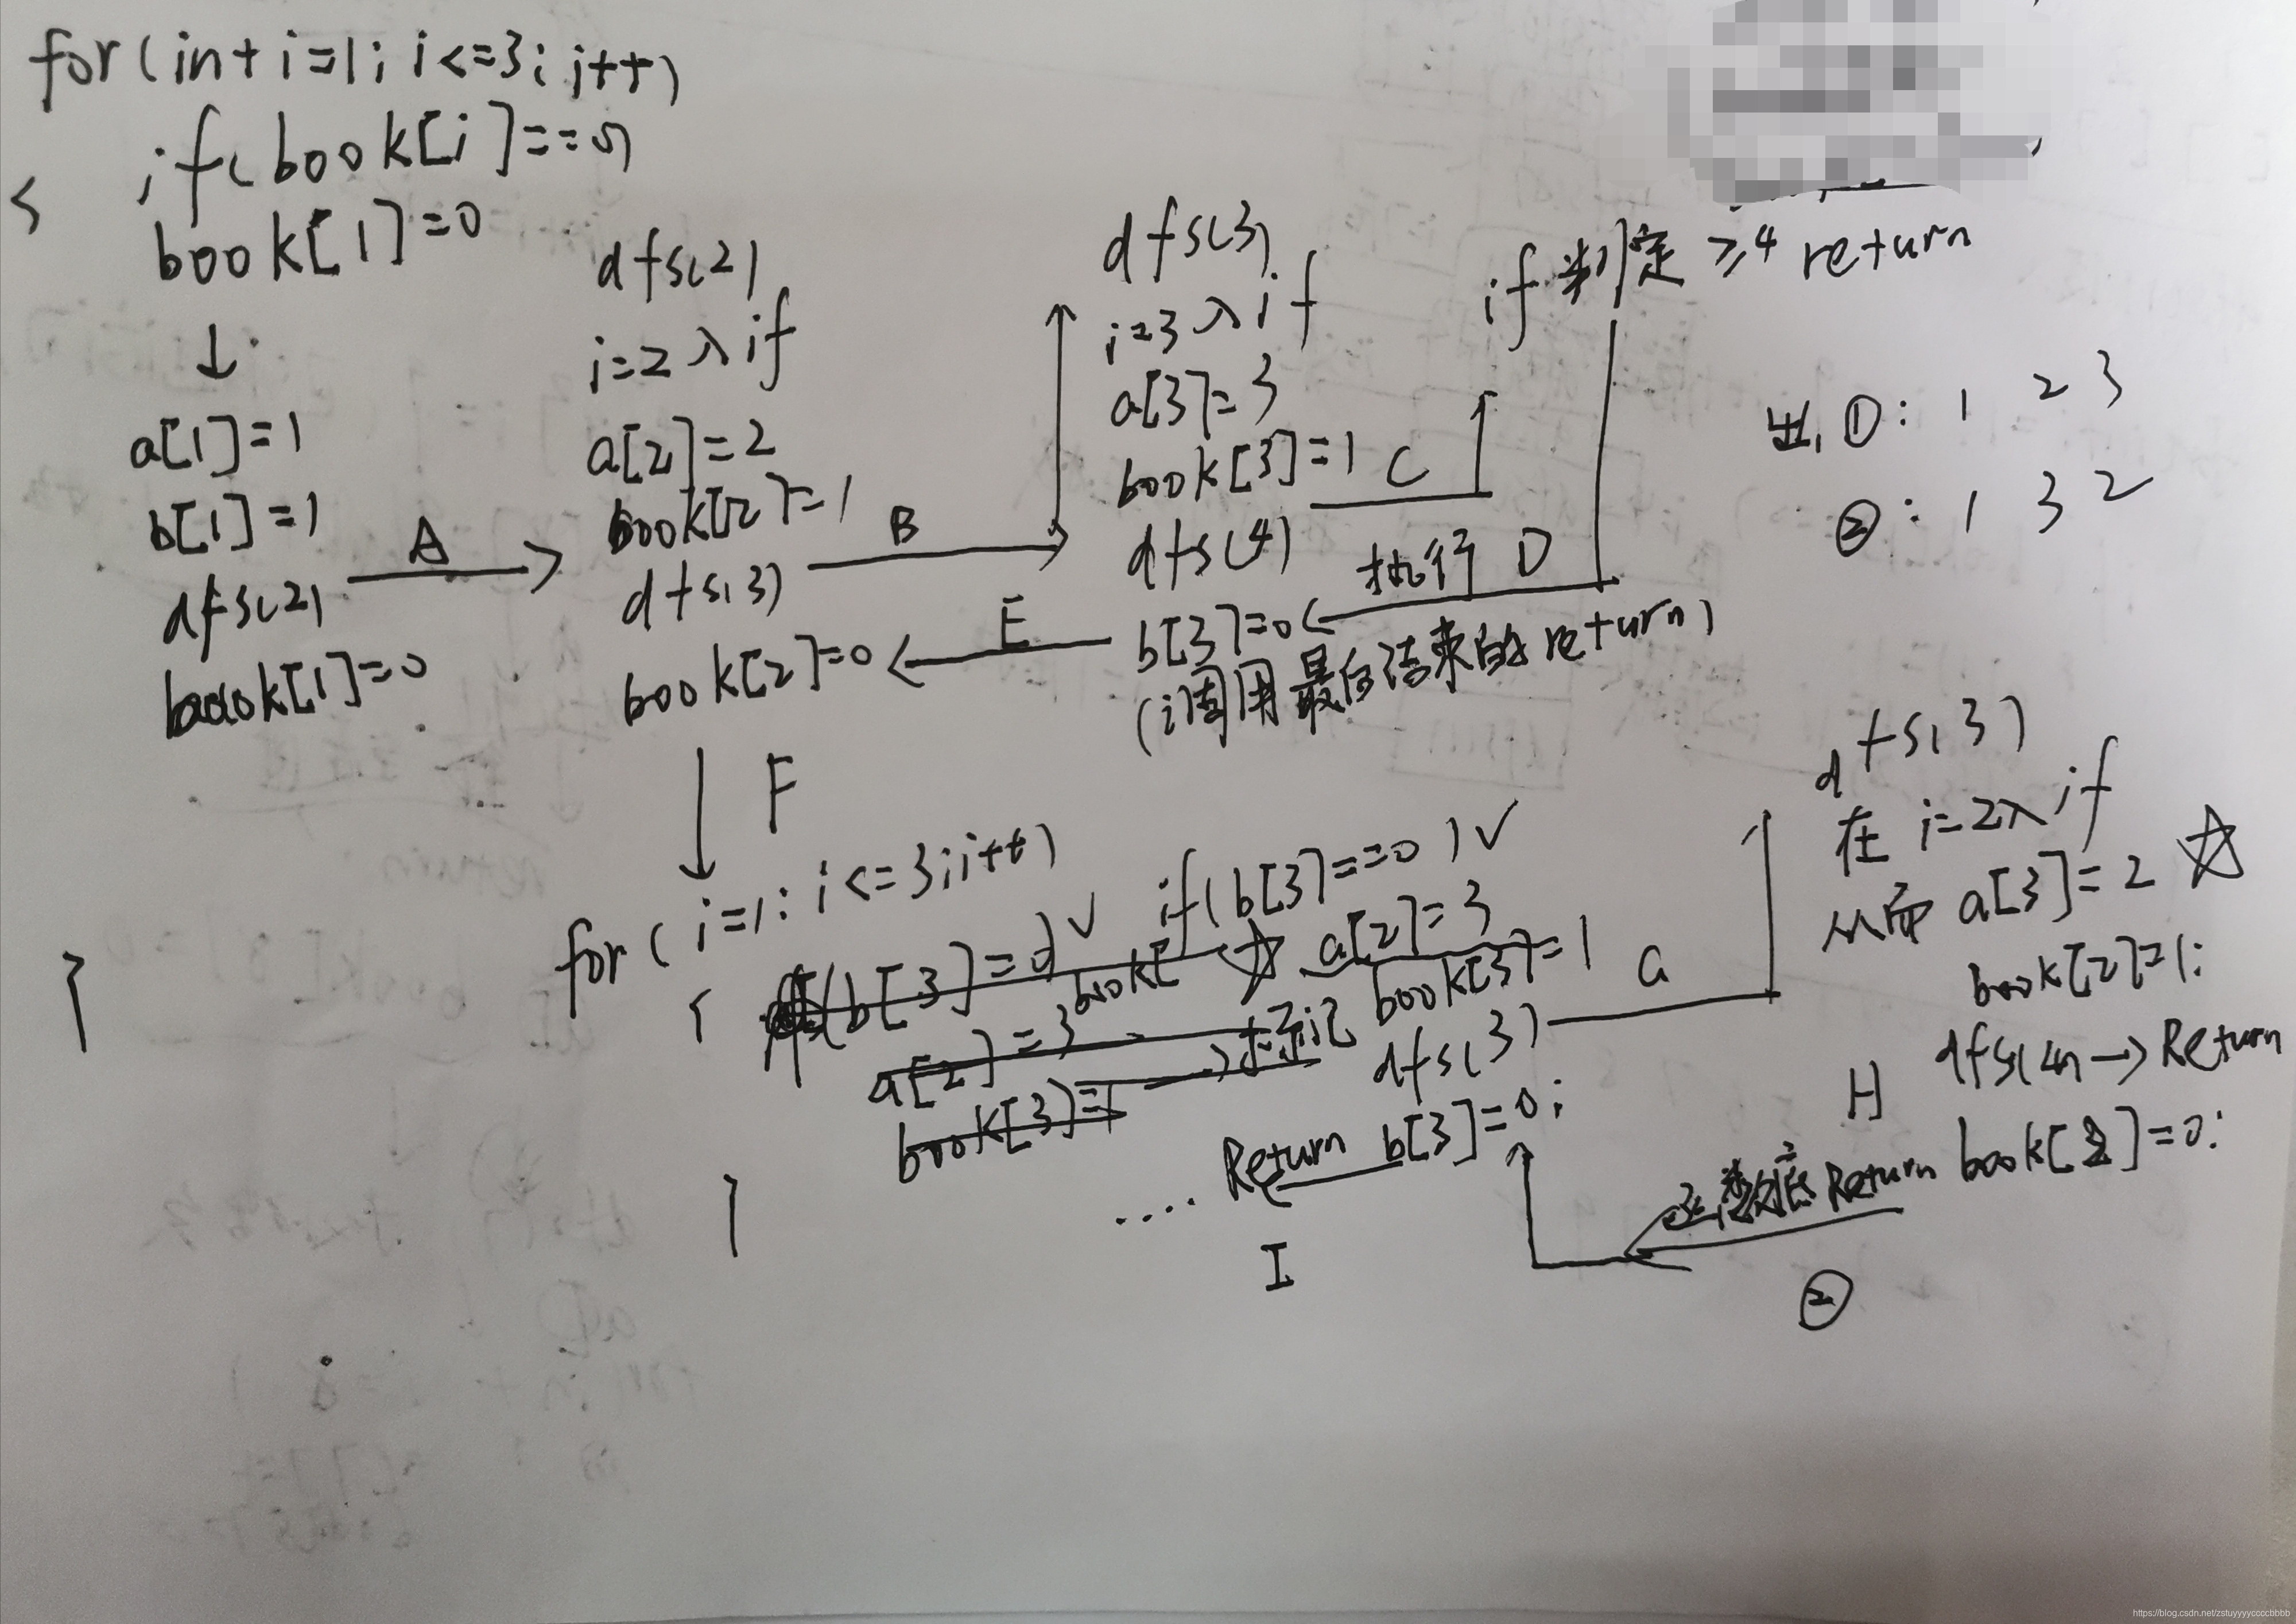 for(int i=1; i<=3; i++)
{
if(book[i]==0)
book[1]=0
↓
a[1]=1
b[1]=1
dfs(2)
book[1]=0
A
dfs(2)
i=2入if
a[2]=2
book[2]=1
dfs(3)
book[2]=0
B
dfs(3)
i=3入if
a[3]=3
book[3]=1
dfs(4)
b[3]=0
(调用最后结束的return)
C
if 判定 ≥4 return
执行 D
E
出 ①: 1 2 3
②: 1 3 2
F
for( i=1; i<=3; i++)
{
if(b[3]=0)✓
book[
a[2]=3
book[3]=1 → 标记
if(b[3]==0)✓
☆ a[2]=3
book[3]=1
dfs(3)
Return b[3]=0;
....
I
}
}
G
dfs(3)
在 i=2入if
从而 a[3]=2 ☆
book[2]=1;
dfs(4) → Return
H
Return book[2]=0;
②
https://blog.csdn.net/zstuyyyyccccbbbb